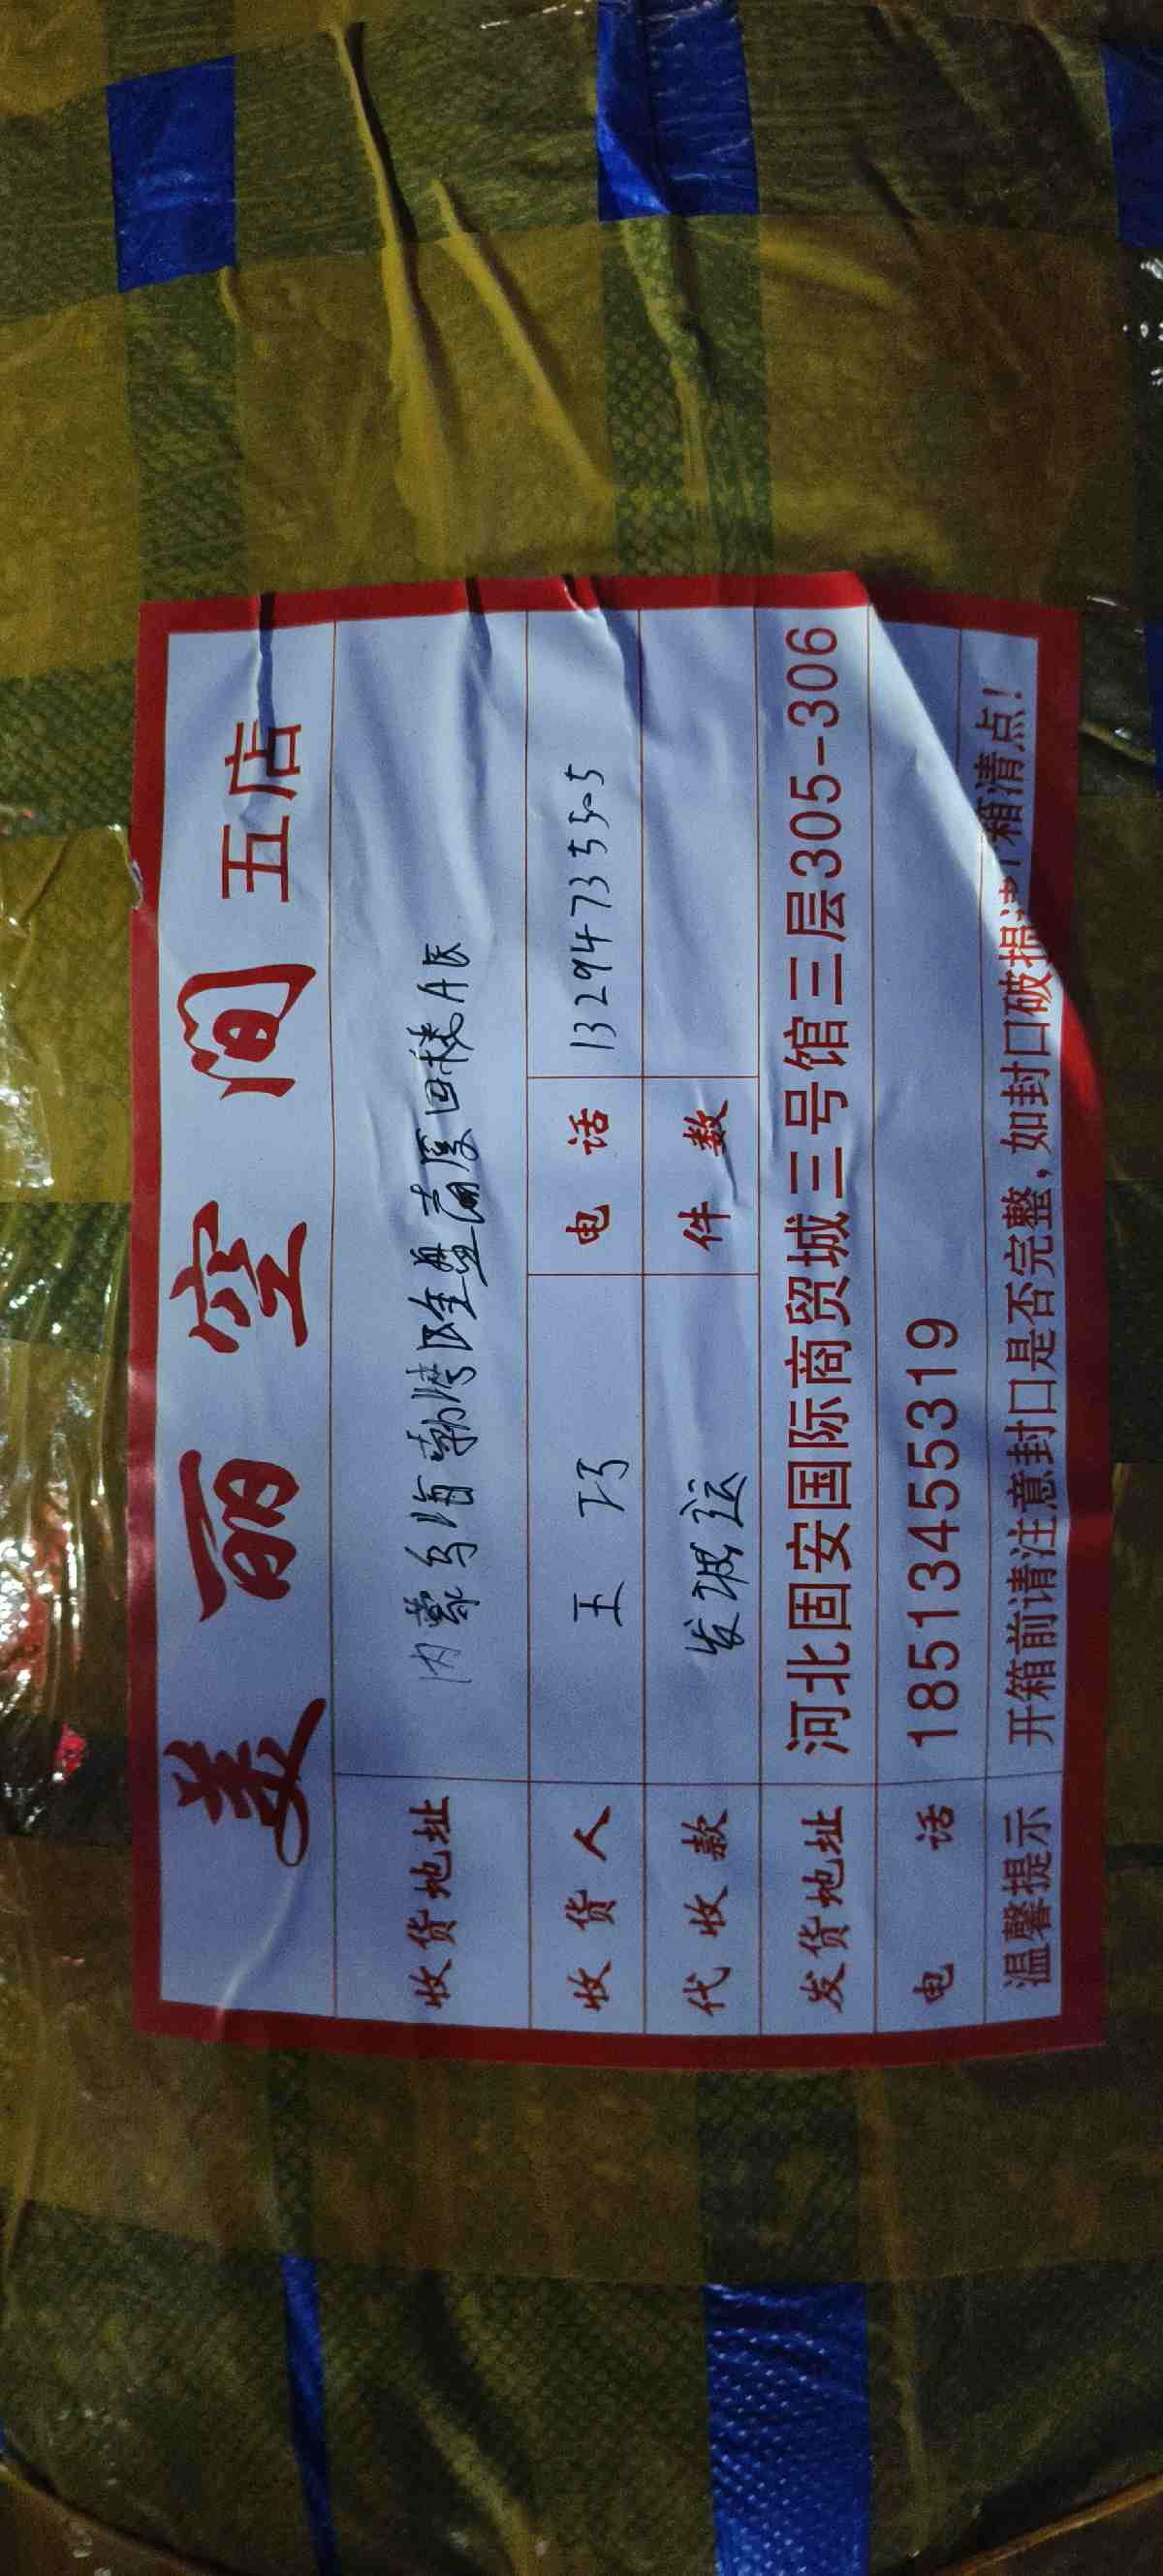 美丽空间 五店
收货地址 内蒙乌海勃湾区金盘商厦四楼A区
收货人 王巧 电话 13294735505
代收款 发诚运 件数
发货地址 河北固安国际商贸城三号馆三层305-306
电话 18513455319
温馨提示 开箱前请注意封口是否完整,如封口破损请开箱清点!